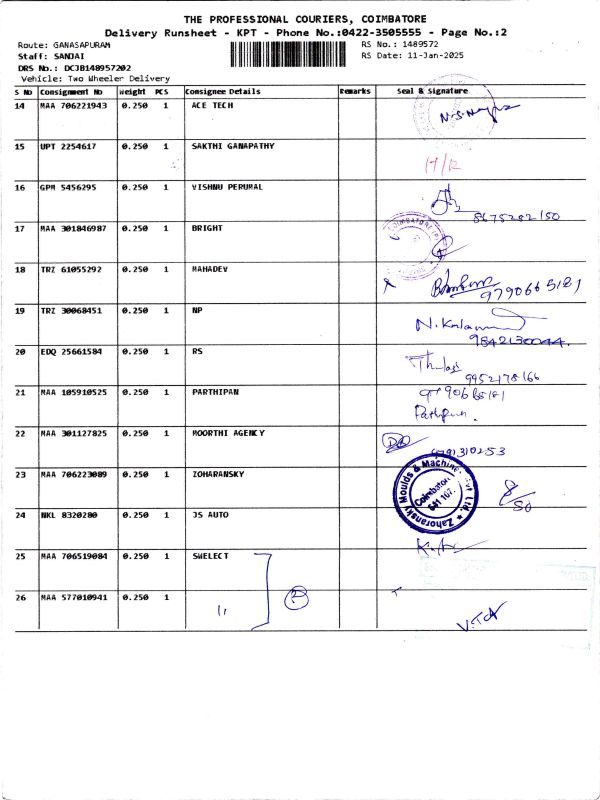 THE PROFESSIONAL COURIERS, COIMBATORE
Delivery Runsheet - KPT - Phone No.:0422-3505555 - Page No.:2
Route: GANASAPURAM
RS No.: 1489572
Staff: SANJAI
RS Date: 11-Jan-2025
DRS No.: DCJB148957202
Vehicle: Two Wheeler Delivery
S No Consignment No Weight PCS Consignee Details Remarks Seal & Signature
14 MAA 706221943 0.250 1 ACE TECH
15 UPT 2254617 0.250 1 SAKTHI GANAPATHY
17/12
16 GPM 5456295 0.250 1 VISHNU PERUMAL
8675282150
17 MAA 301846987 0.250 1 BRIGHT
COIMBATORE
18 TRZ 61055292 0.250 1 MAHADEV
9790665181
19 TRZ 30068451 0.250 1 NP
N. Kalam
9842130044.
20 EDQ 25661584 0.250 1 RS
Thulasi
9952178166
21 MAA 105910525 0.250 1 PARTHIPAN
Parthipan.
22 MAA 301127825 0.250 1 MOORTHI AGENCY
23 MAA 706223089 0.250 1 ZOHARANSKY
Zahoransky Moulds & Machines Pvt Ltd.
Coimbatore
641 107.
8/50
24 NKL 8320280 0.250 1 JS AUTO
25 MAA 706519084 0.250 1 SWELECT
26 MAA 577010941 0.250 1 "
2
V.TA